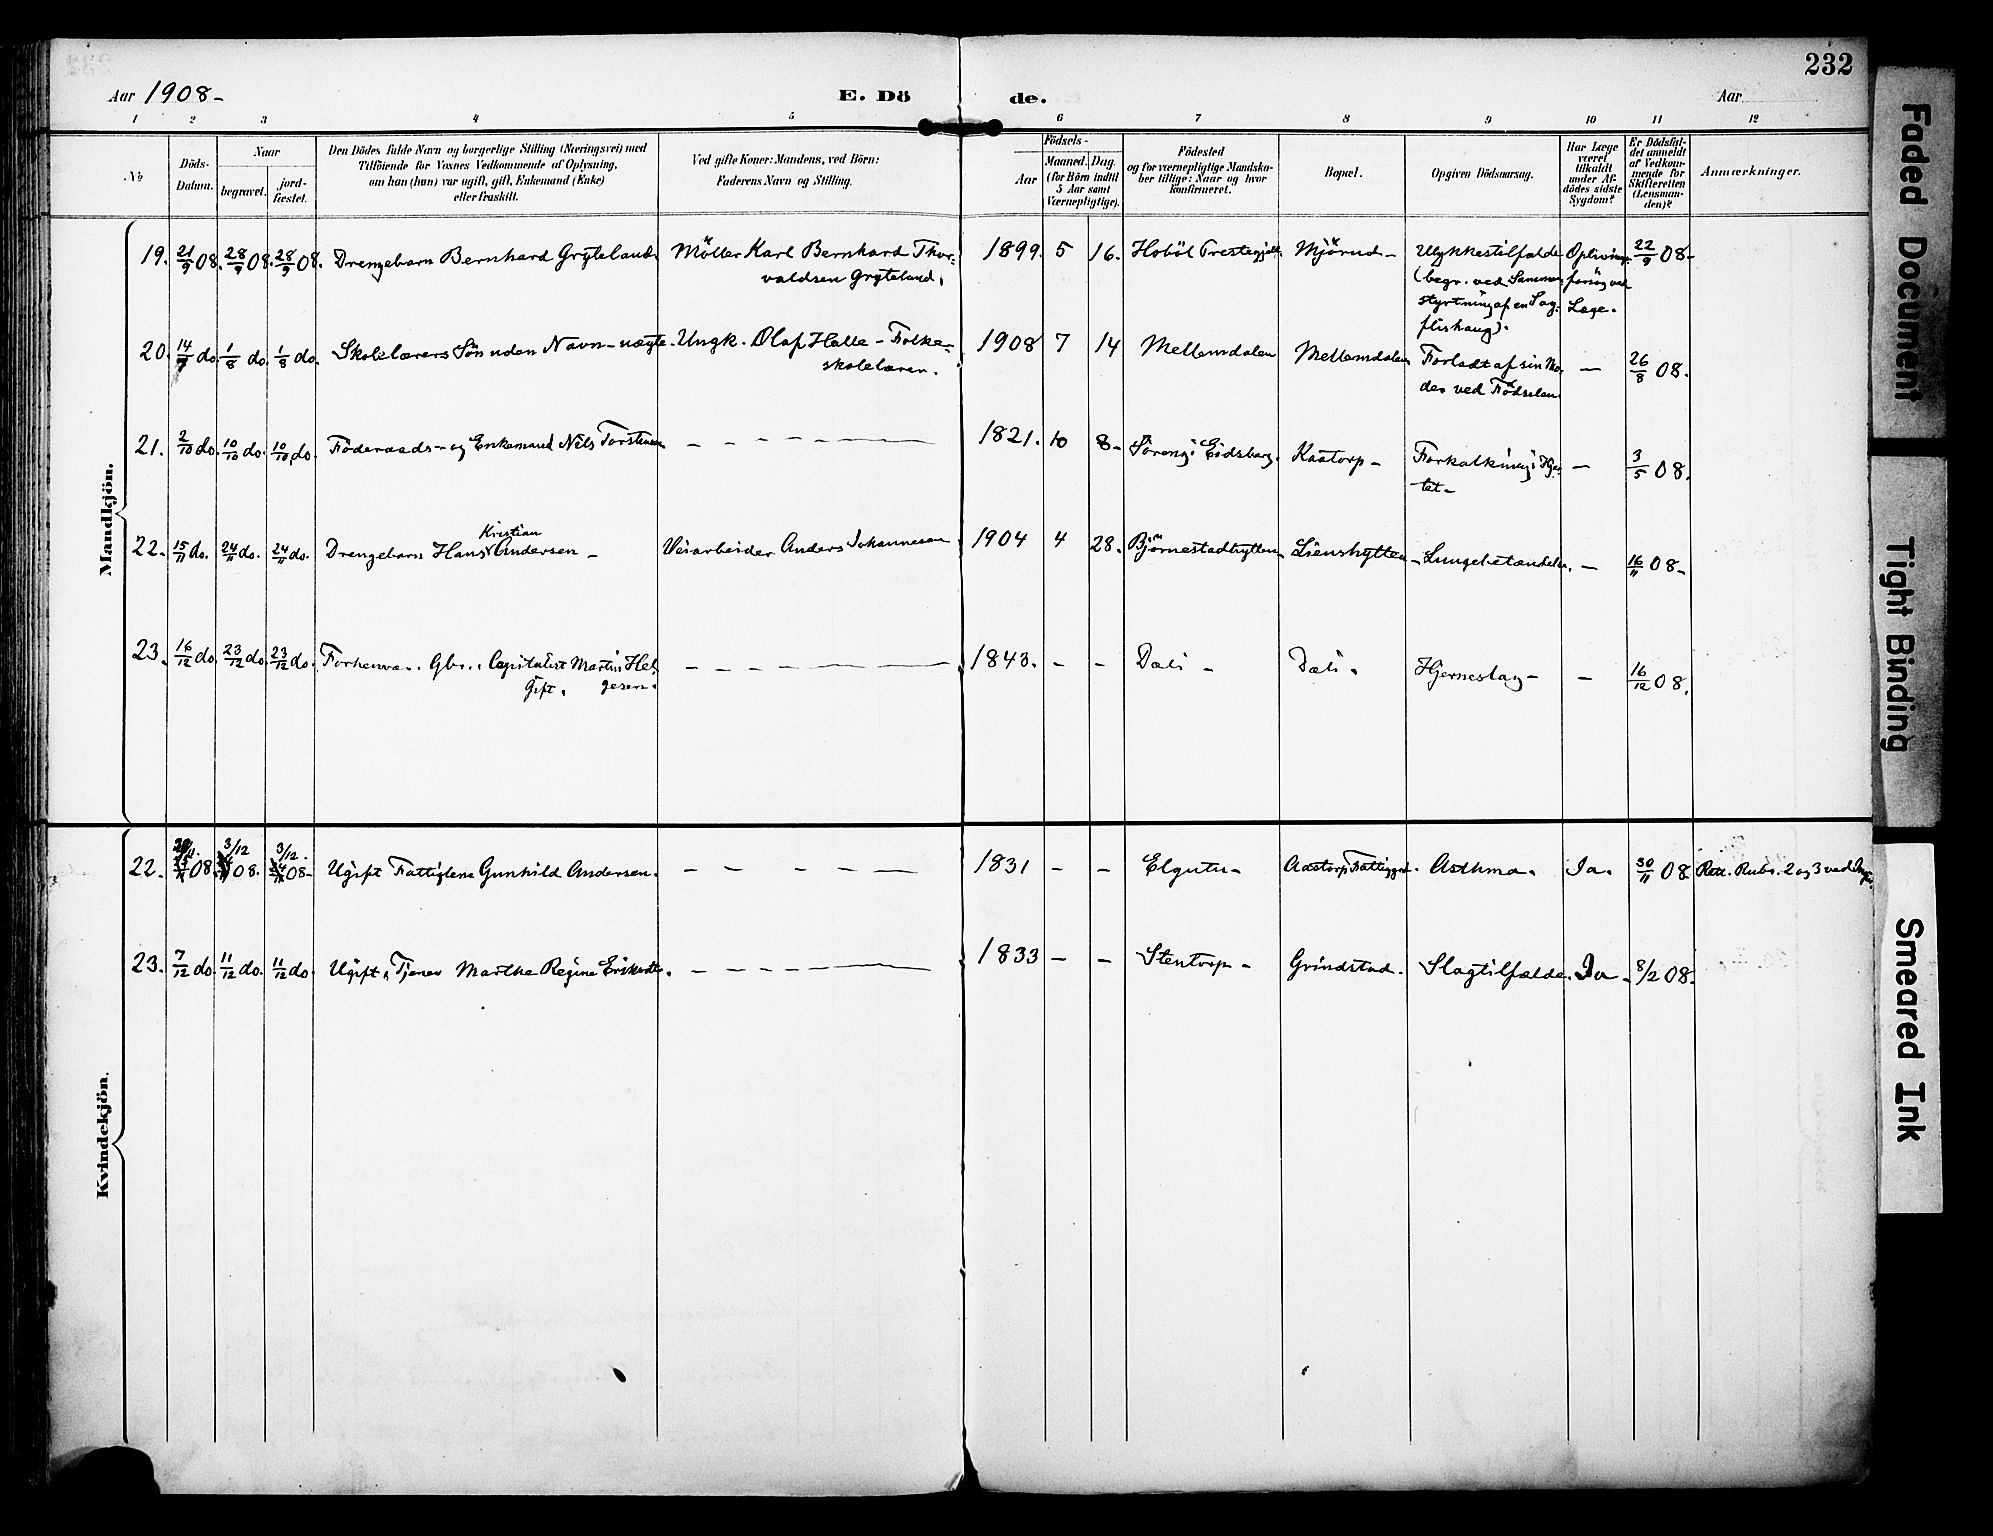 232
Aar 1908-
E. Dö de.
Aar
1 2 3 4 5 6 7 8 9 10 11 12
№
Döds-
Datum.
Naar
begravet.
jord-
fæstet.
Den Dödes fulde Navn og borgerlige Stilling (Næringsvei) med
Tilföiende for Voxnes Vedkommende af Oplysning,
om han (hun) var ugift, gift, Enkemand (Enke)
eller fraskilt.
Ved gifte Koner: Mandens, ved Börn:
Faderens Navn og Stilling.
Födsels-
Aar
Maaned. Dag.
(for Börn indtil
5 Aar samt
Værnepligtige).
Födested
og for værnepligtige Mandska-
ber tillige: Naar og hvor
konfirmeret.
Bopæl.
Opgiven Dödsaarsag.
Har Læge
været
tilkaldt
under Af-
dödes sidste
Sygdom?
Er Dödsfal-
det anmeldt
af Vedkom-
mende for
Skifteretten
(Lensman-
den)?
Anmærkninger.
Mandkjön.
19. 21/9 08. 28/9 08. 28/9 08. Drengebarn Bernhard Gryteland. Möller Karl Bernhard Thor- 1899. 5 16. Hoböl Prestegjeld. Mjörud- Ulykkestilfælde Oplivnings- 22/9 08-
valdsen Gryteland. (begr. ved Sammen- forsög ved
styrtning af en Sag- Læge.
flishaug).
20. 14/7 do. 1/8 do. 1/8 do. Skolelærers Sön uden Navn - uægte. Ungk. Olaf Halle - Folke- 1908 7 14 Mellemdalen Mellemdalen Forladt af sin Mo- - 26/8 08.
skolelærer. der ved Födselen
21. 2/10 do. 10/10 do. 10/10 do. Föderaads- og Enkemand Nils Torstensen - - - - - 1821. 10 8- Sörengi Eidsberg. Kaatorp- Forkalkning i Hjer- - 3/5 08.
tet-
22. 15/11 do. 24/11 do. 24/11 do. Drengebarn Hans Kristian Andersen - Veiarbeider Anders Johannesen 1904 4 28. Björnestadhytten- Lienshytten- Lungebetændelse. - 16/11 08-
23. 16/12 do. 23/12 do. 23/12 do. Forhenvæ. Gbr., Capitalist Martin Hel- - - - - - 1843. - - Dæli - Dæli. Hjerneslag- - 16/12 08.
Gift. gesen.
Kvindekjön.
22. 08. 3/12 08. 3/12. 08- Ugift Fattiglem Gunhild Andersen. - - - - - 1831 - - Elgutu- Aastorp Fattiggrd. Asthma. Ja. 30/11 08 Ret. Rubr. 2 og 3 ved
23. 7/12 do. 11/12 do. 11/12 do. Ugift, Tjener Marthe Regine Eriksdtr. - - - - - 1833 - - Stentorp- Grindstad. Slagtilfælde. Ja- 8/2 08.
Faded Document
Tight Binding
Smeared Ink